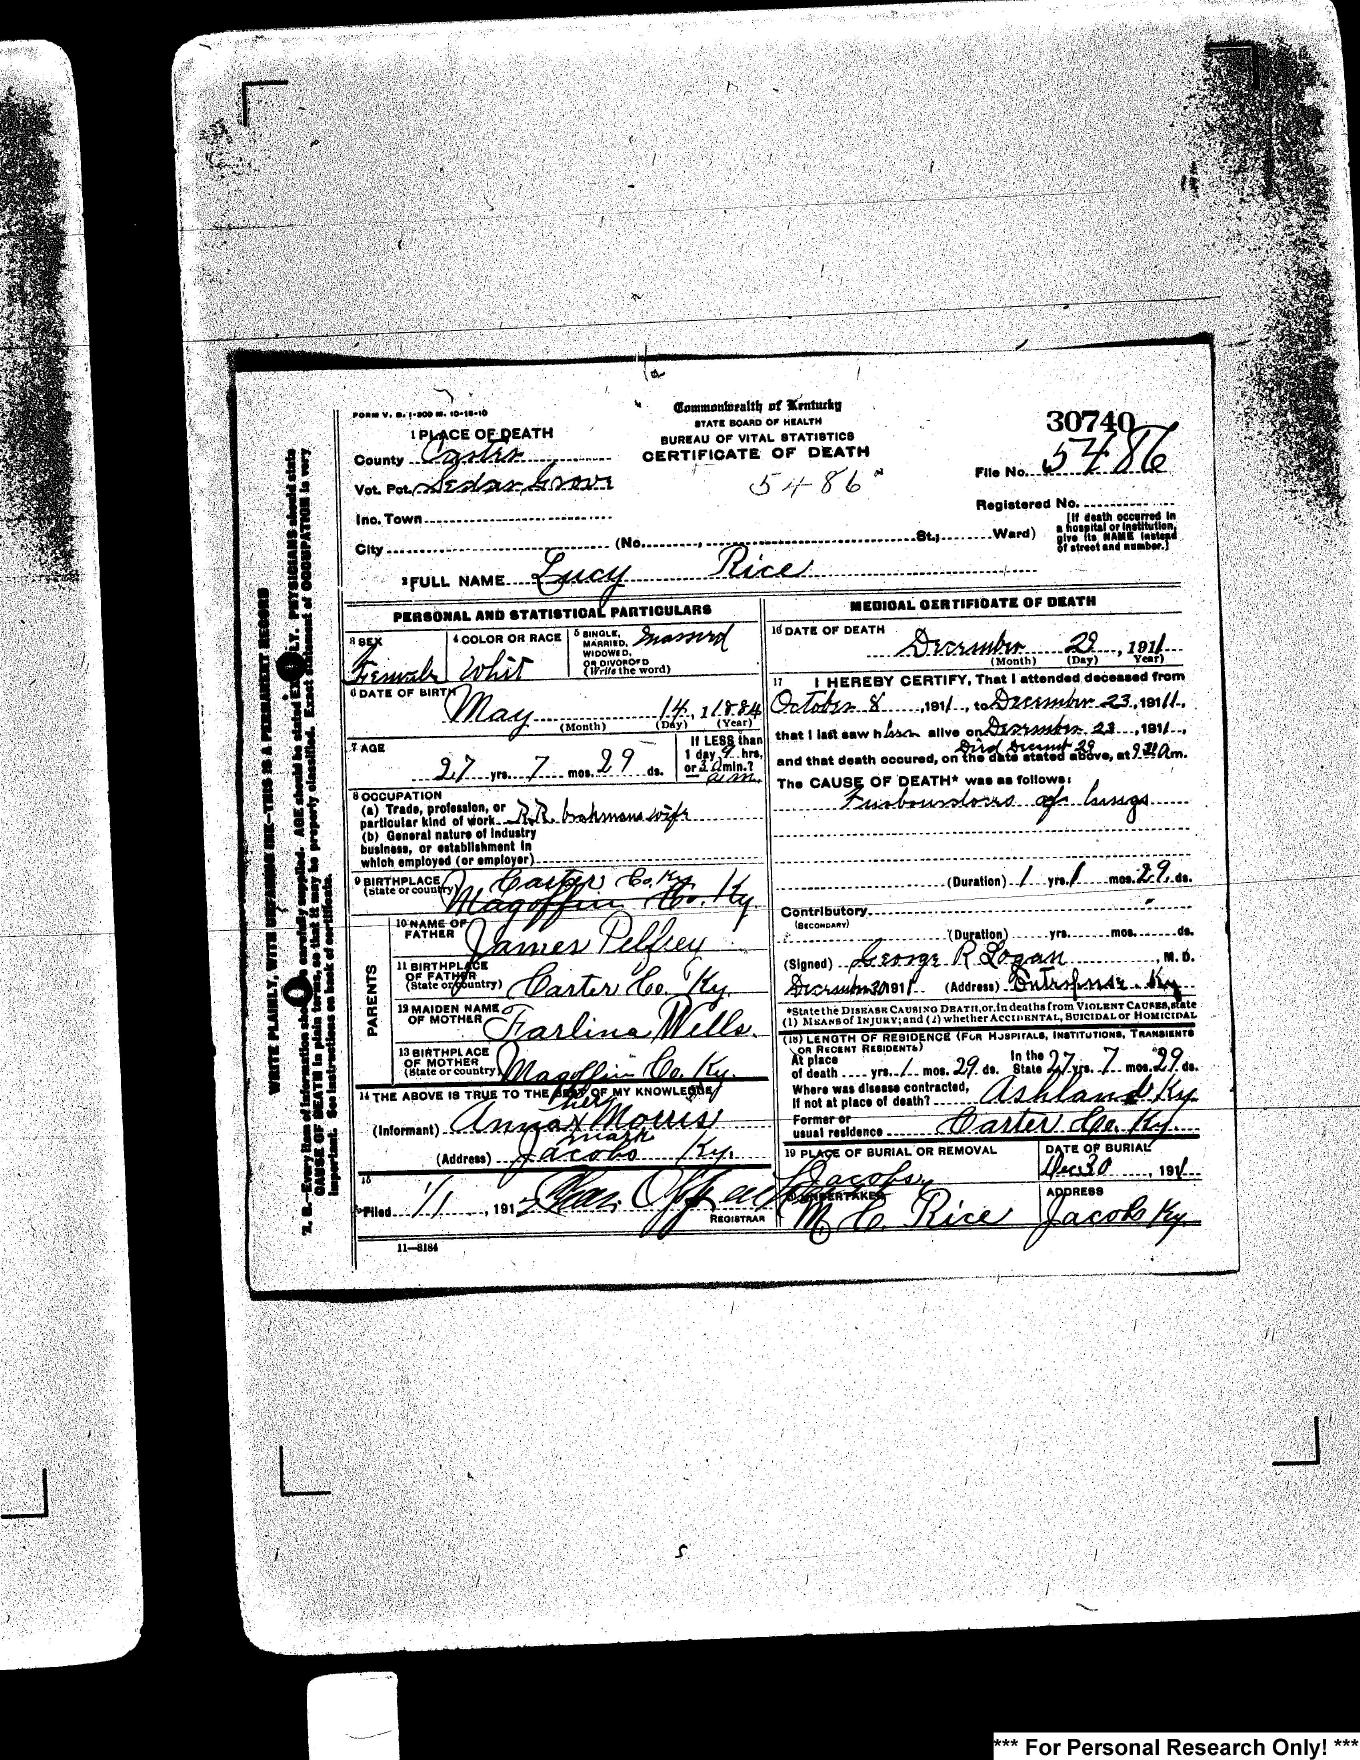 FORM V. S. 1-200 M. 10-18-10
Commonwealth of Kentucky
STATE BOARD OF HEALTH
BUREAU OF VITAL STATISTICS
CERTIFICATE OF DEATH
5486
30740
File No. 5486
Registered No.
[If death occurred in a hospital or institution, give its NAME instead of street and number.]
1 PLACE OF DEATH
County Carter
Vot. Pct. Sedar Grove
Inc. Town
City (No. , St.; Ward)
2 FULL NAME Lucy Rice
PERSONAL AND STATISTICAL PARTICULARS
3 SEX
Female
4 COLOR OR RACE
Whit
5 SINGLE, MARRIED, WIDOWED, OR DIVORCED (Write the word)
6 DATE OF BIRTH
May 14, 1884
(Month) (Day) (Year)
7 AGE
27 yrs. 7 mos. 29 ds.
If LESS than 1 day 9 hrs. or 30 min.?
a.m.
8 OCCUPATION
(a) Trade, profession, or particular kind of work R.R. brakmans wife
(b) General nature of industry business, or establishment in which employed (or employer)
9 BIRTHPLACE (State or country)
Carter Co. Ky
Magoffin Co. Ky.
PARENTS
10 NAME OF FATHER James Pelfrey
11 BIRTHPLACE OF FATHER (State or country) Carter Co. Ky.
12 MAIDEN NAME OF MOTHER Farlina Wells.
13 BIRTHPLACE OF MOTHER (State or country) Magoffin Co. Ky.
14 THE ABOVE IS TRUE TO THE BEST OF MY KNOWLEDGE
her
(Informant) Anna x Morris
mark
(Address) Jacobs Ky.
15
Filed 1/1, 1912
REGISTRAR
11—8184
MEDICAL CERTIFICATE OF DEATH
16 DATE OF DEATH
December 29, 1911
(Month) (Day) Year)
17 I HEREBY CERTIFY, That I attended deceased from
October 8, 1911, to December 23, 1911,
that I last saw h alive on December 23, 1911,
Died 29
and that death occured, on the date stated above, at 9 30 a m.
The CAUSE OF DEATH* was as follows:
of lungs
(Duration) 1 yrs. 1 mos. 29 ds.
Contributory
(SECONDARY)
(Duration) yrs. mos. ds.
(Signed) George R Logan, M. D.
1911 (Address) Ky
*State the DISEASE CAUSING DEATH, or, in deaths from VIOLENT CAUSES, state
(1) MEANS of INJURY; and (2) whether ACCIDENTAL, SUICIDAL or HOMICIDAL
(18) LENGTH OF RESIDENCE (FOR HOSPITALS, INSTITUTIONS, TRANSIENTS OR RECENT RESIDENTS)
At place of death yrs. 1 mos. 29 ds. In the State 27 yrs. 7 mos. 29 ds.
Where was disease contracted, If not at place of death? Ashland Ky
Former or usual residence Carter Co. Ky.
19 PLACE OF BURIAL OR REMOVAL
Jacobs,
DATE OF BURIAL
Dec 30, 1911
UNDERTAKER
M. C. Rice
ADDRESS
Jacobs Ky.
WRITE PLAINLY, WITH UNFADING INK—THIS IS A PERMANENT RECORD
N. B.—Every item of information should be carefully supplied. AGE should be stated EXACTLY. PHYSICIANS should state
CAUSE OF DEATH in plain terms, so that it may be properly classified. Exact statement of OCCUPATION is very
important. See instructions on back of certificate.
*** For Personal Research Only! ***